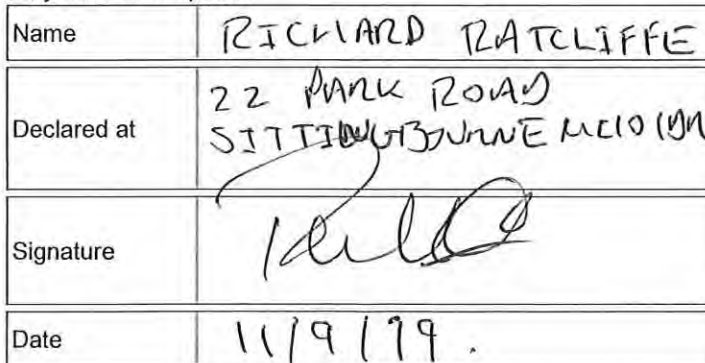 Name RICHARD RATCLIFFE
Declared at 22 PARK ROAD
SITTINGBOURNE ME10 1DR
Signature
Date 11/9/19.